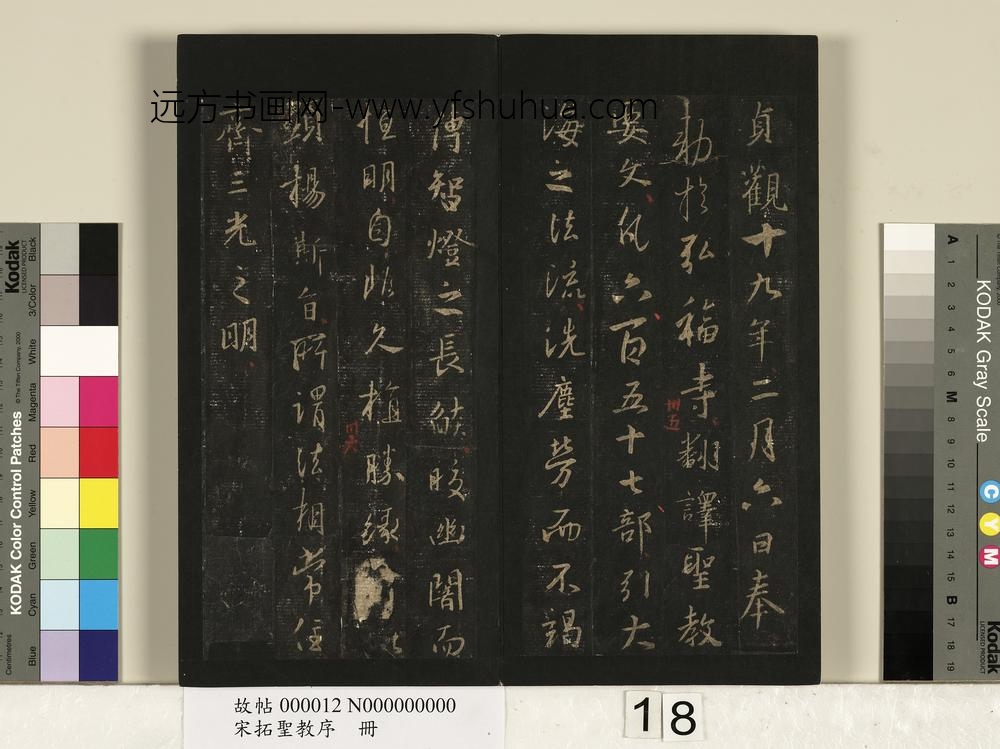 远方书画网-www.yfshuhua.com
貞觀十九年二月六日奉
勅於弘福寺翻譯聖教
要文凡六百五十七部引大
海之法流洗塵勞而不竭
傳智燈之長焰皎幽闇而
恒明自非久植勝緣何以
顯揚斯旨所謂法相常住
齊三光之明
卅五
卅六
故帖 000012 N000000000
宋拓聖教序 冊
18
Kodak
LICENSED PRODUCT
KODAK Color Control Patches
© The Tiffen Company, 2000
Centimetres
Blue
Cyan
Green
Yellow
Red
Magenta
White
3/Color
Black
KODAK Gray Scale
A 1 2 3 4 5 6 M 8 9 10 11 12 13 14 15 B 17 18 19
C
Y
M
Kodak
LICENSED PRODUCT